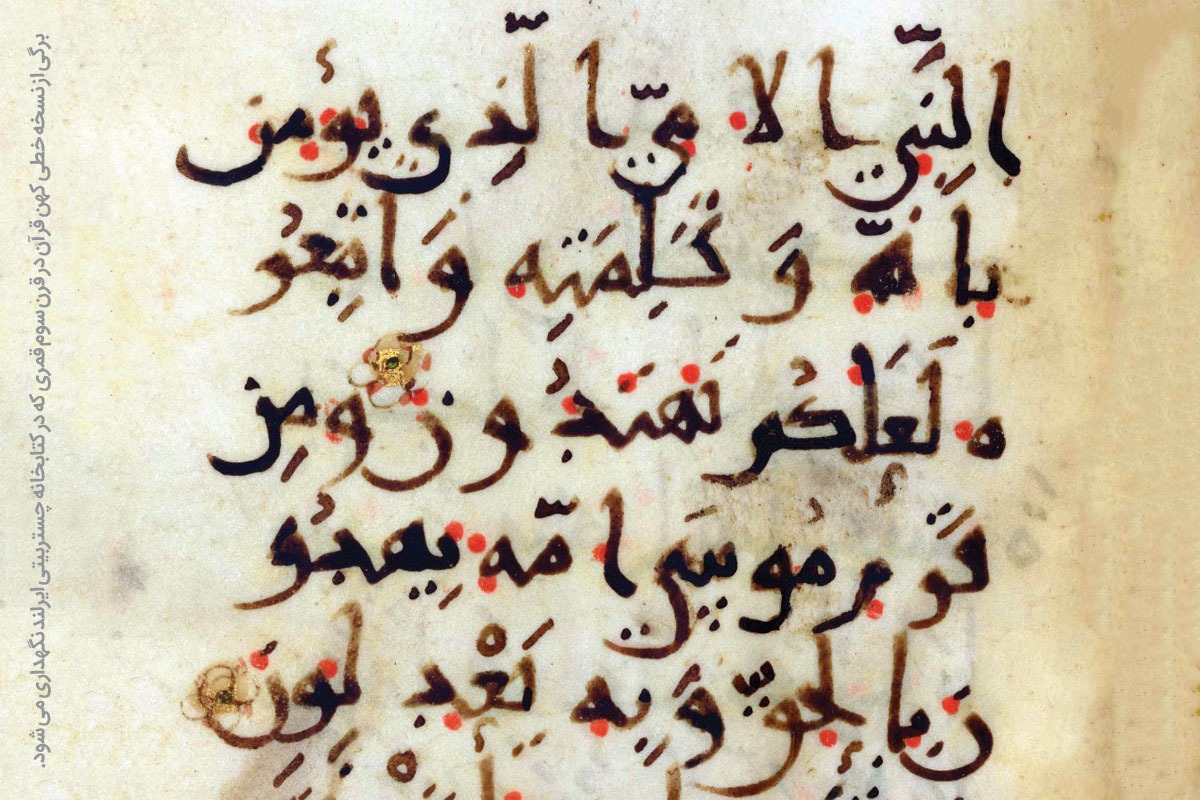 النَّبِيِّ الامِّيِّ الَّذِي يُؤْمِنُ
بِاللَّهِ وَكَلِمَتِهِ وَاتَّبِعُو
ه لَعَلَّكُم تَهْتَدُونَ وَمِن
قَومِ مُوسَى امَّةٌ يَهدُو
نَ بِالحَقِّ وَبِهِ يَعْدِلُونَ
برگی از نسخه خطی کهن قرآن در قرن سوم قمری که در کتابخانه چستربیتی ایرلند نگهداری می شود.